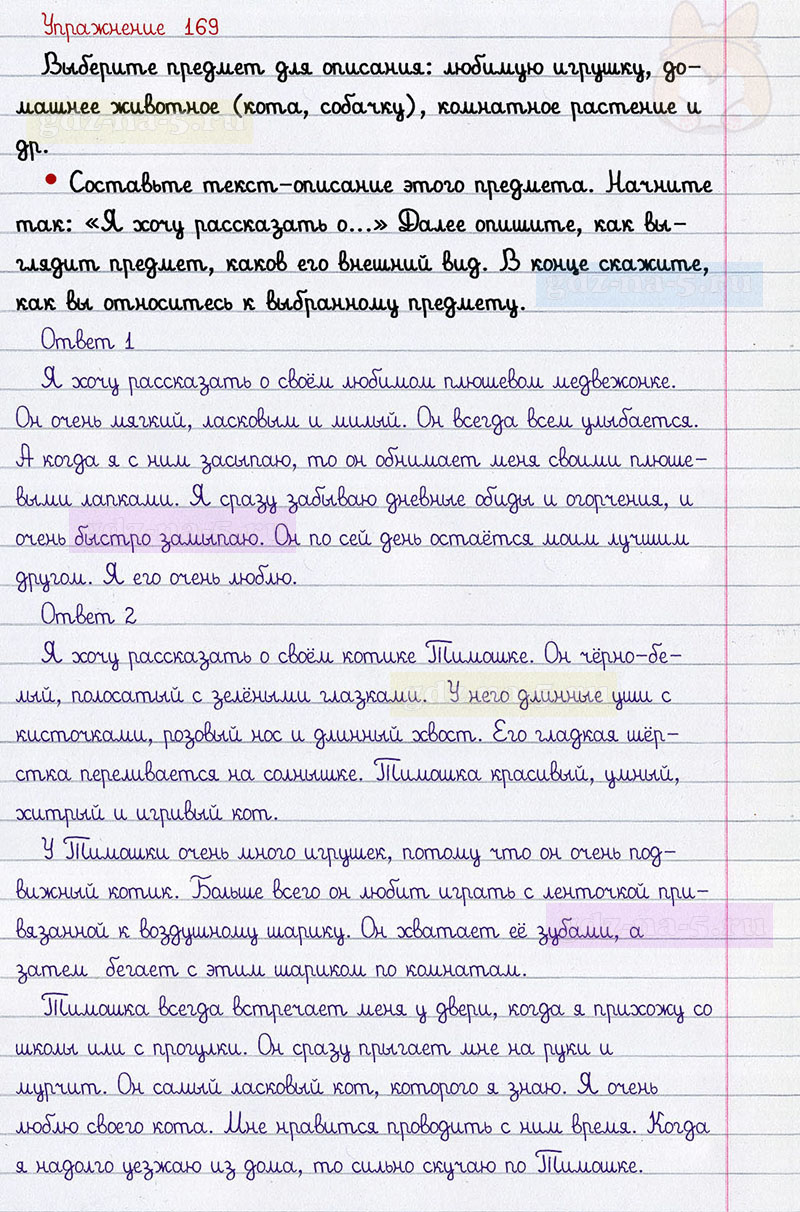 Упражнение 169
Выберите предмет для описания: любимую игрушку, до-
машнее животное (кота, собачку), комнатное растение и
gdz-na-5.ru
др.
• Составьте текст-описание этого предмета. Начните
так: «Я хочу рассказать о...» Далее опишите, как вы-
глядит предмет, каков его внешний вид. В конце скажите,
gdz-na-5.ru
как вы относитесь к выбранному предмету.
Ответ 1
Я хочу рассказать о своём любимом плюшевом медвежонке.
Он очень мягкий, ласковым и милый. Он всегда всем улыбается.
А когда я с ним засыпаю, то он обнимает меня своими плюше-
выми лапками. Я сразу забываю дневные обиды и огорчения, и
gdz-na-5.ru
очень быстро замыпаю. Он по сей день остаётся моим лучшим
другом. Я его очень люблю.
Ответ 2
Я хочу рассказать о своём котике Тимашке. Он чёрно-бе-
лый, полосатый с зелёными глазками. У него длинные уши с
gdz-na-5.ru
кисточками, розовый нос и длинный хвост. Его гладкая шёр-
стка переливается на солнышке. Тимашка красивый, умный,
хитрый и игривый кот.
У Тимашки очень много игрушек, потому что он очень под-
вижный котик. Больше всего он любит играть с ленточкой при-
вязанной к воздушному шарику. Он хватает её зубами, а
gdz-na-5.ru
затем бегает с этим шариком по комнатам.
Тимашка всегда встречает меня у двери, когда я прихожу со
школы или с прогулки. Он сразу прыгает мне на руки и
мурчит. Он самый ласковый кот, которого я знаю. Я очень
люблю своего кота. Мне нравится проводить с ним время. Когда
я надолго уезжаю из дома, то сильно скучаю по Тимашке.